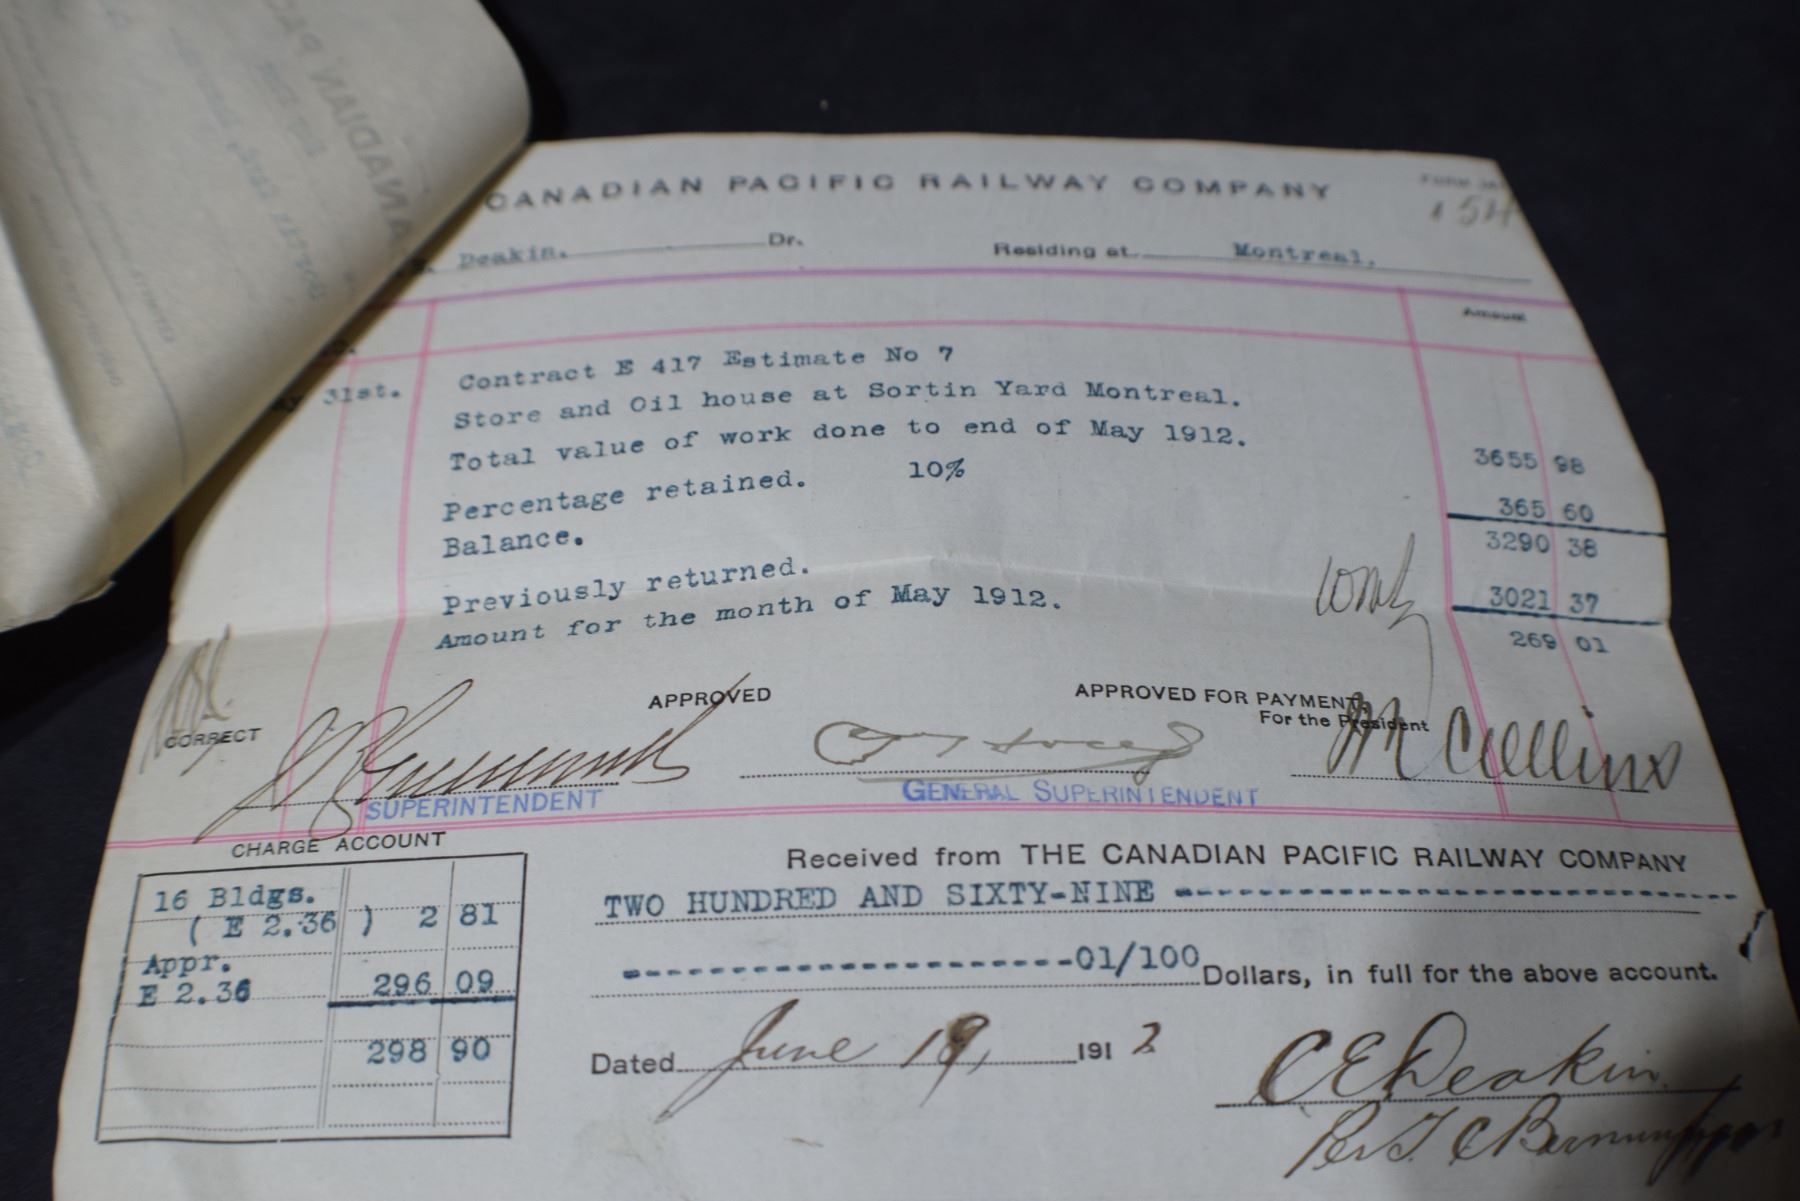 CANADIAN PACIFIC RAILWAY COMPANY
154
Deakin. Dr. Residing at Montreal.
Amount
31st. Contract E 417 Estimate No 7
Store and Oil house at Sortin Yard Montreal.
Total value of work done to end of May 1912. 3655 98
Percentage retained. 10% 365 60
Balance. 3290 38
Previously returned. 3021 37
Amount for the month of May 1912. 269 01
CORRECT APPROVED APPROVED FOR PAYMENT
For the President
SUPERINTENDENT GENERAL SUPERINTENDENT
CHARGE ACCOUNT
16 Bldgs.
( E 2.36 ) 2 81
Appr.
E 2.36 296 09
298 90
Received from THE CANADIAN PACIFIC RAILWAY COMPANY
TWO HUNDRED AND SIXTY-NINE ----------------------
-----------------------01/100 Dollars, in full for the above account.
Dated June 19, 1912
C E Deakin